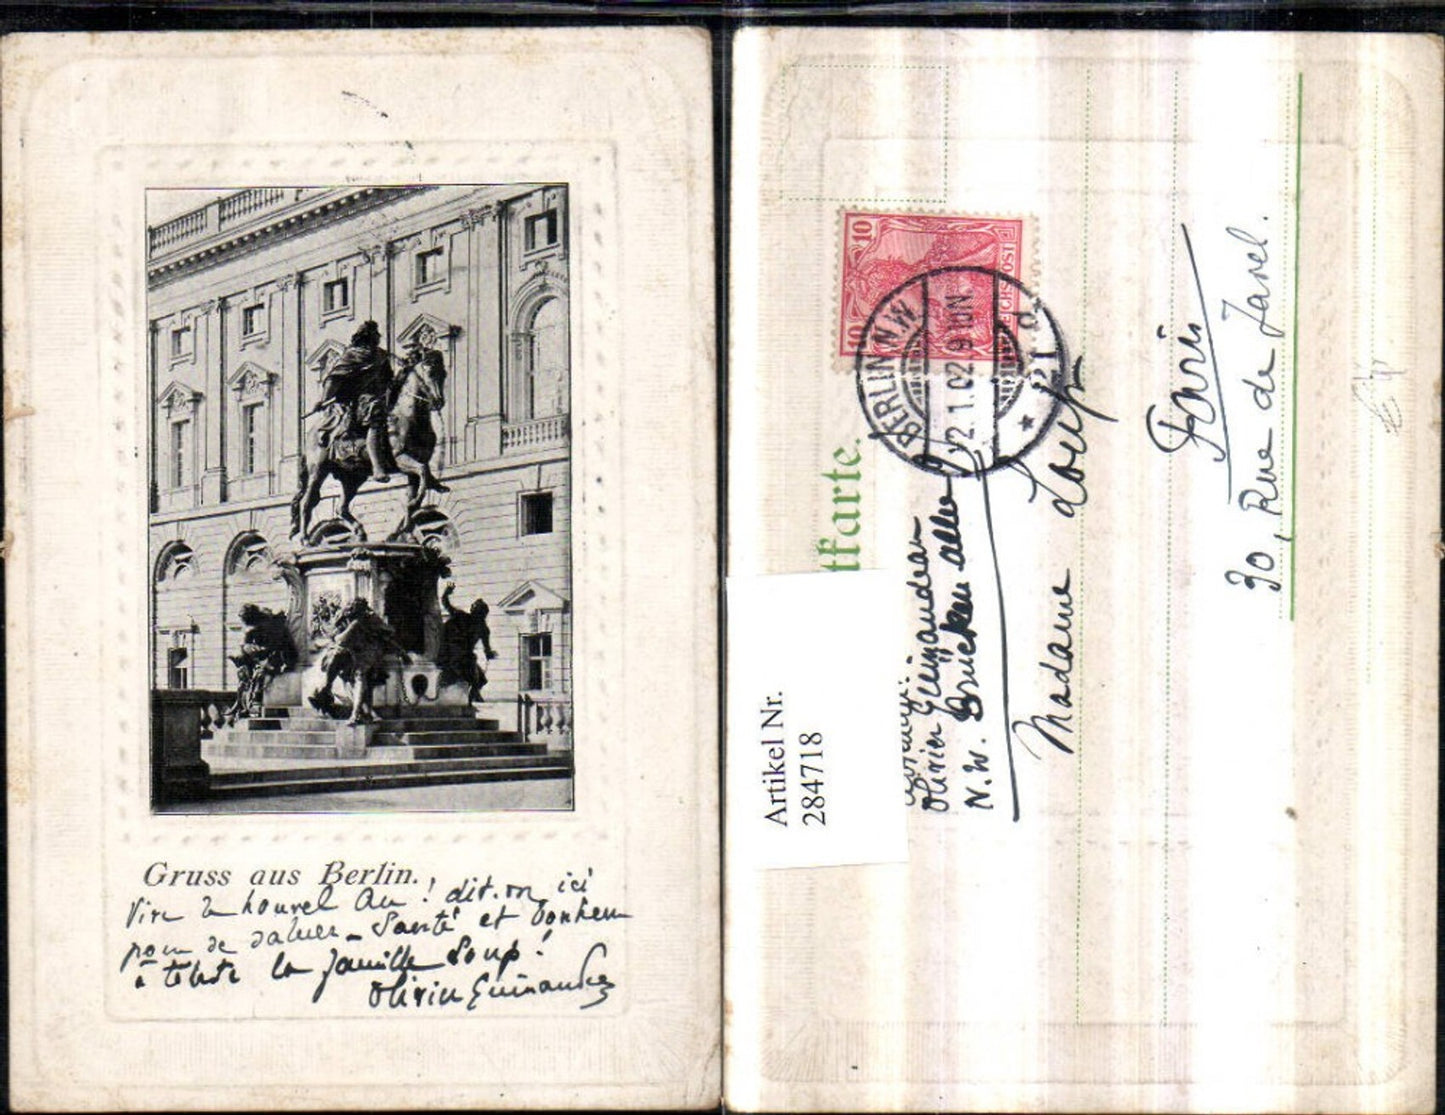 Gruss aus Berlin.
Vive le nouvel An ! dit-on ici
pour se saluer - Santé et bonheur
à toute la famille Loup !
Olivier Guimaudeau
10
10
REICHSPOST
BERLIN N.W.
2.1.02. 9-10N.
* 21 d.
tkarte.
Olivier Guimaudeau
N.W. Brücken allee
Madame Loup
Paris
30, Rue de Javel.
Artikel Nr.
284718